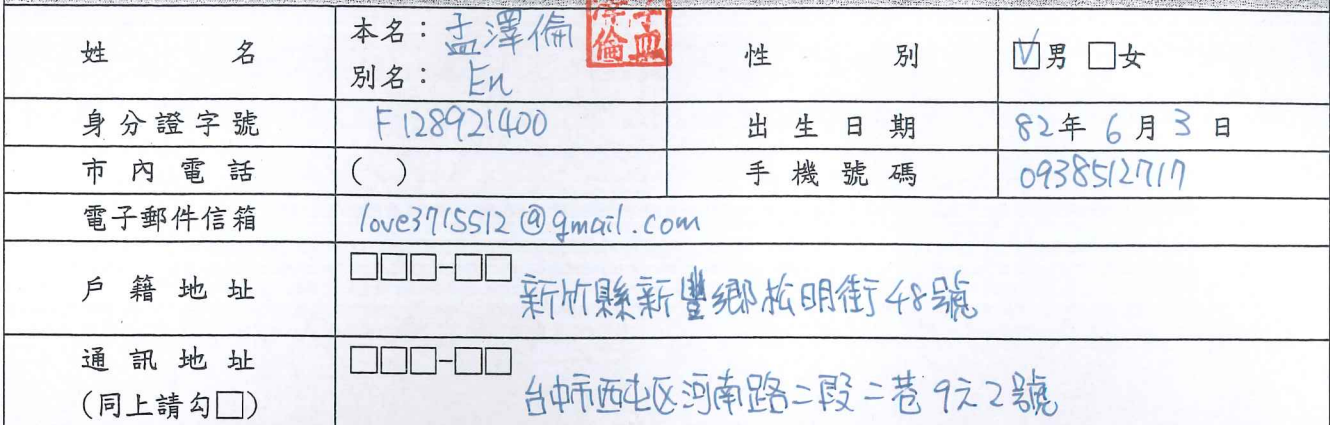 姓名 本名：孟澤倫 性別 ☑男 □女
別名：En
身分證字號 F128921400 出生日期 82年6月3日
市內電話 ( ) 手機號碼 0938512717
電子郵件信箱 love3715512@gmail.com
戶籍地址 □□□-□□
新竹縣新豐鄉松明街48號
通訊地址 □□□-□□
(同上請勾□) 台中市西屯区河南路二段二巷9之2號